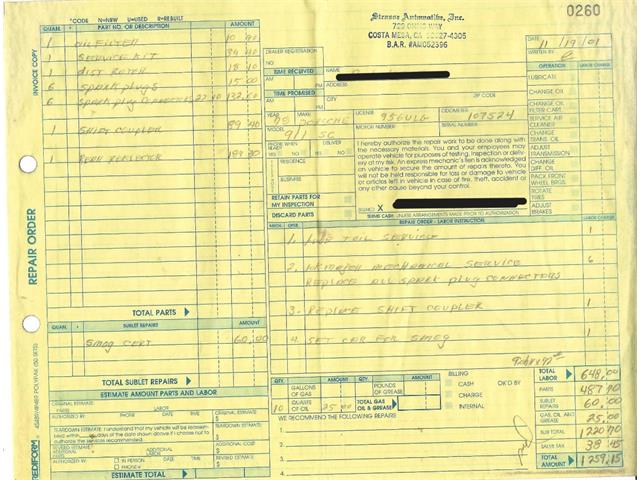 *CODE N=NEW U=USED R=REBUILT
QUAN. * PART NO. OR DESCRIPTION AMOUNT
1 OIL FILTER 10 90
1 SERVICE KIT
1 DIST ROTER 18 10
6 SPARK PLUGS 15 00
6 SPARK PLUG CONNECTORS 22.10 132.60
1 SHIFT COUPLER 89 40
1 REAR REFLECTOR
TOTAL PARTS
QUAN. * SUBLET REPAIRS AMOUNT
SMOG CERT 60.00
TOTAL SUBLET REPAIRS
ESTIMATE AMOUNT PARTS AND LABOR
ORIGINAL ESTIMATE:
PARTS LABOR
AUTHORIZED BY PHONE DATE TIME
TEARDOWN ESTIMATE. I understand that my vehicle will be reassembled within days of the date shown above if I choose not to authorize the services recommended.
TEARDOWN ESTIMATE
REVISED ESTIMATE
ADDITIONAL COST
AUTHORIZED BY
IN PERSON
PHONE #
DATE TIME
REVISED ESTIMATE
ESTIMATE TOTAL
INVOICE COPY
REPAIR ORDER
REDIFORM
4S489/4P489 POLYPAK (50 SETS)
0260
Strasse Automotive, Inc.
729 OHMS WAY
COSTA MESA, CA 92627-4305
B.A.R. #AM052396
DEALER REGISTRATION NO.
TIME RECEIVED
A.M. P.M.
TIME PROMISED
A.M. P.M.
CITY ZIP CODE
YEAR MAKE LICENSE ODOMETER
95 PORSCHE 956ULG 107524
MODEL MOTOR NUMBER SERIAL NUMBER
911 SC
PHONE WHEN READY DELIVER
YES NO YES NO
RESIDENCE
BUSINESS
RETAIN PARTS FOR MY INSPECTION
DISCARD PARTS
I hereby authorize the repair work to be done along with the necessary materials. You and your employees may operate vehicle for purposes of testing, inspection or delivery at my risk. An express mechanic's lien is acknowledged on vehicle to secure the amount of repairs thereto. You will not be held responsible for loss or damage to vehicle or articles left in vehicle in case of fire, theft, accident or any other cause beyond your control.
SIGNED X
TERMS CASH UNLESS ARRANGEMENTS MADE PRIOR TO AUTHORIZATION
DATE
11/19/01
WRITTEN BY
OPERATION LABOR CHARGE
LUBRICATE
CHANGE OIL
CHANGE OIL
FILTER CARE
SERVICE AIR
CLEANER
CHANGE TRANS.
ADJUST
TRANSMISSION
CHANGE
DIFF. OIL
PACK FRONT
WHEEL BRGS.
ROTATE
TIRES
ADJUST
BRAKES
MECH. OPER. REPAIR ORDER - LABOR INSTRUCTION LABOR CHARGE
1. LUBE OIL SERVICE 1
2. MAJOR MECHANICAL SERVICE 6
REPLACE ALL SPARK PLUG CONNECTORS
3. REPLACE SHIFT COUPLER 1
4. SET CAR FOR SMOG 1
QTY. QTY.
GALLONS OF GAS
POUNDS OF GREASE
10 QUARTS OF OIL 25.00
TOTAL GAS OIL & GREASE
WE RECOMMEND THE FOLLOWING REPAIRS
1.
2.
3.
4.
BILLING
CASH
CHARGE
INTERNAL
OK'D BY
TOTAL LABOR 648.00
PARTS 487.70
SUBLET REPAIRS 60.00
GAS, OIL AND GREASE 25.00
SUB TOTAL 1220.70
SALES TAX 38.45
TOTAL AMOUNT 1259.15